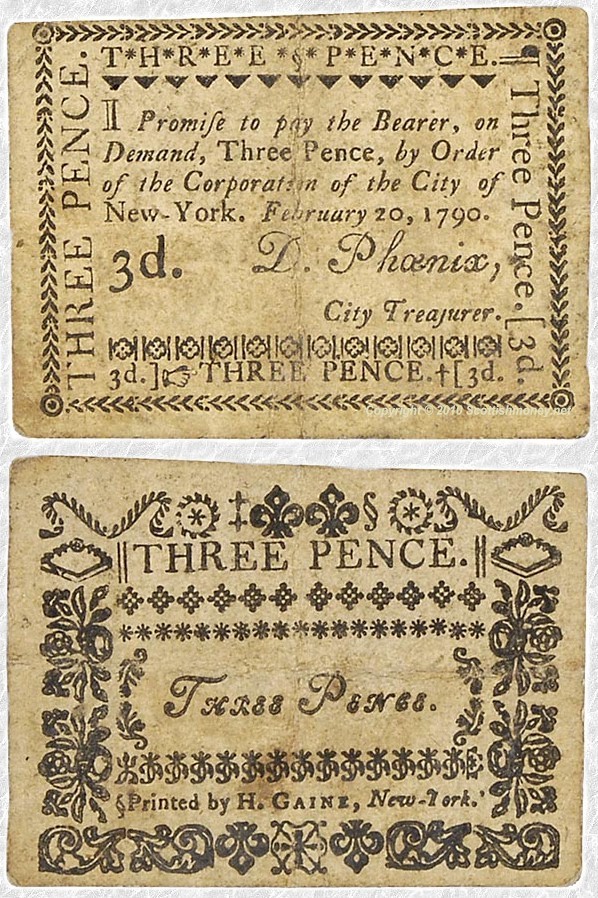 T*H*R*E*E * § * P*E*N*C*E.
THREE PENCE.
I Promiſe to pay the Bearer, on
Demand, Three Pence, by Order
of the Corporation of the City of
New-York. February 20, 1790.
3d. D. Phœnix,
City Treaſurer.
Three Pence. [3d.
3d.]☞THREE PENCE.†[3d.
Copyright © 2010 Scottishmoney.net
‡ §
||THREE PENCE.||
Three Pence.
§Printed by H. GAINE, New-York.